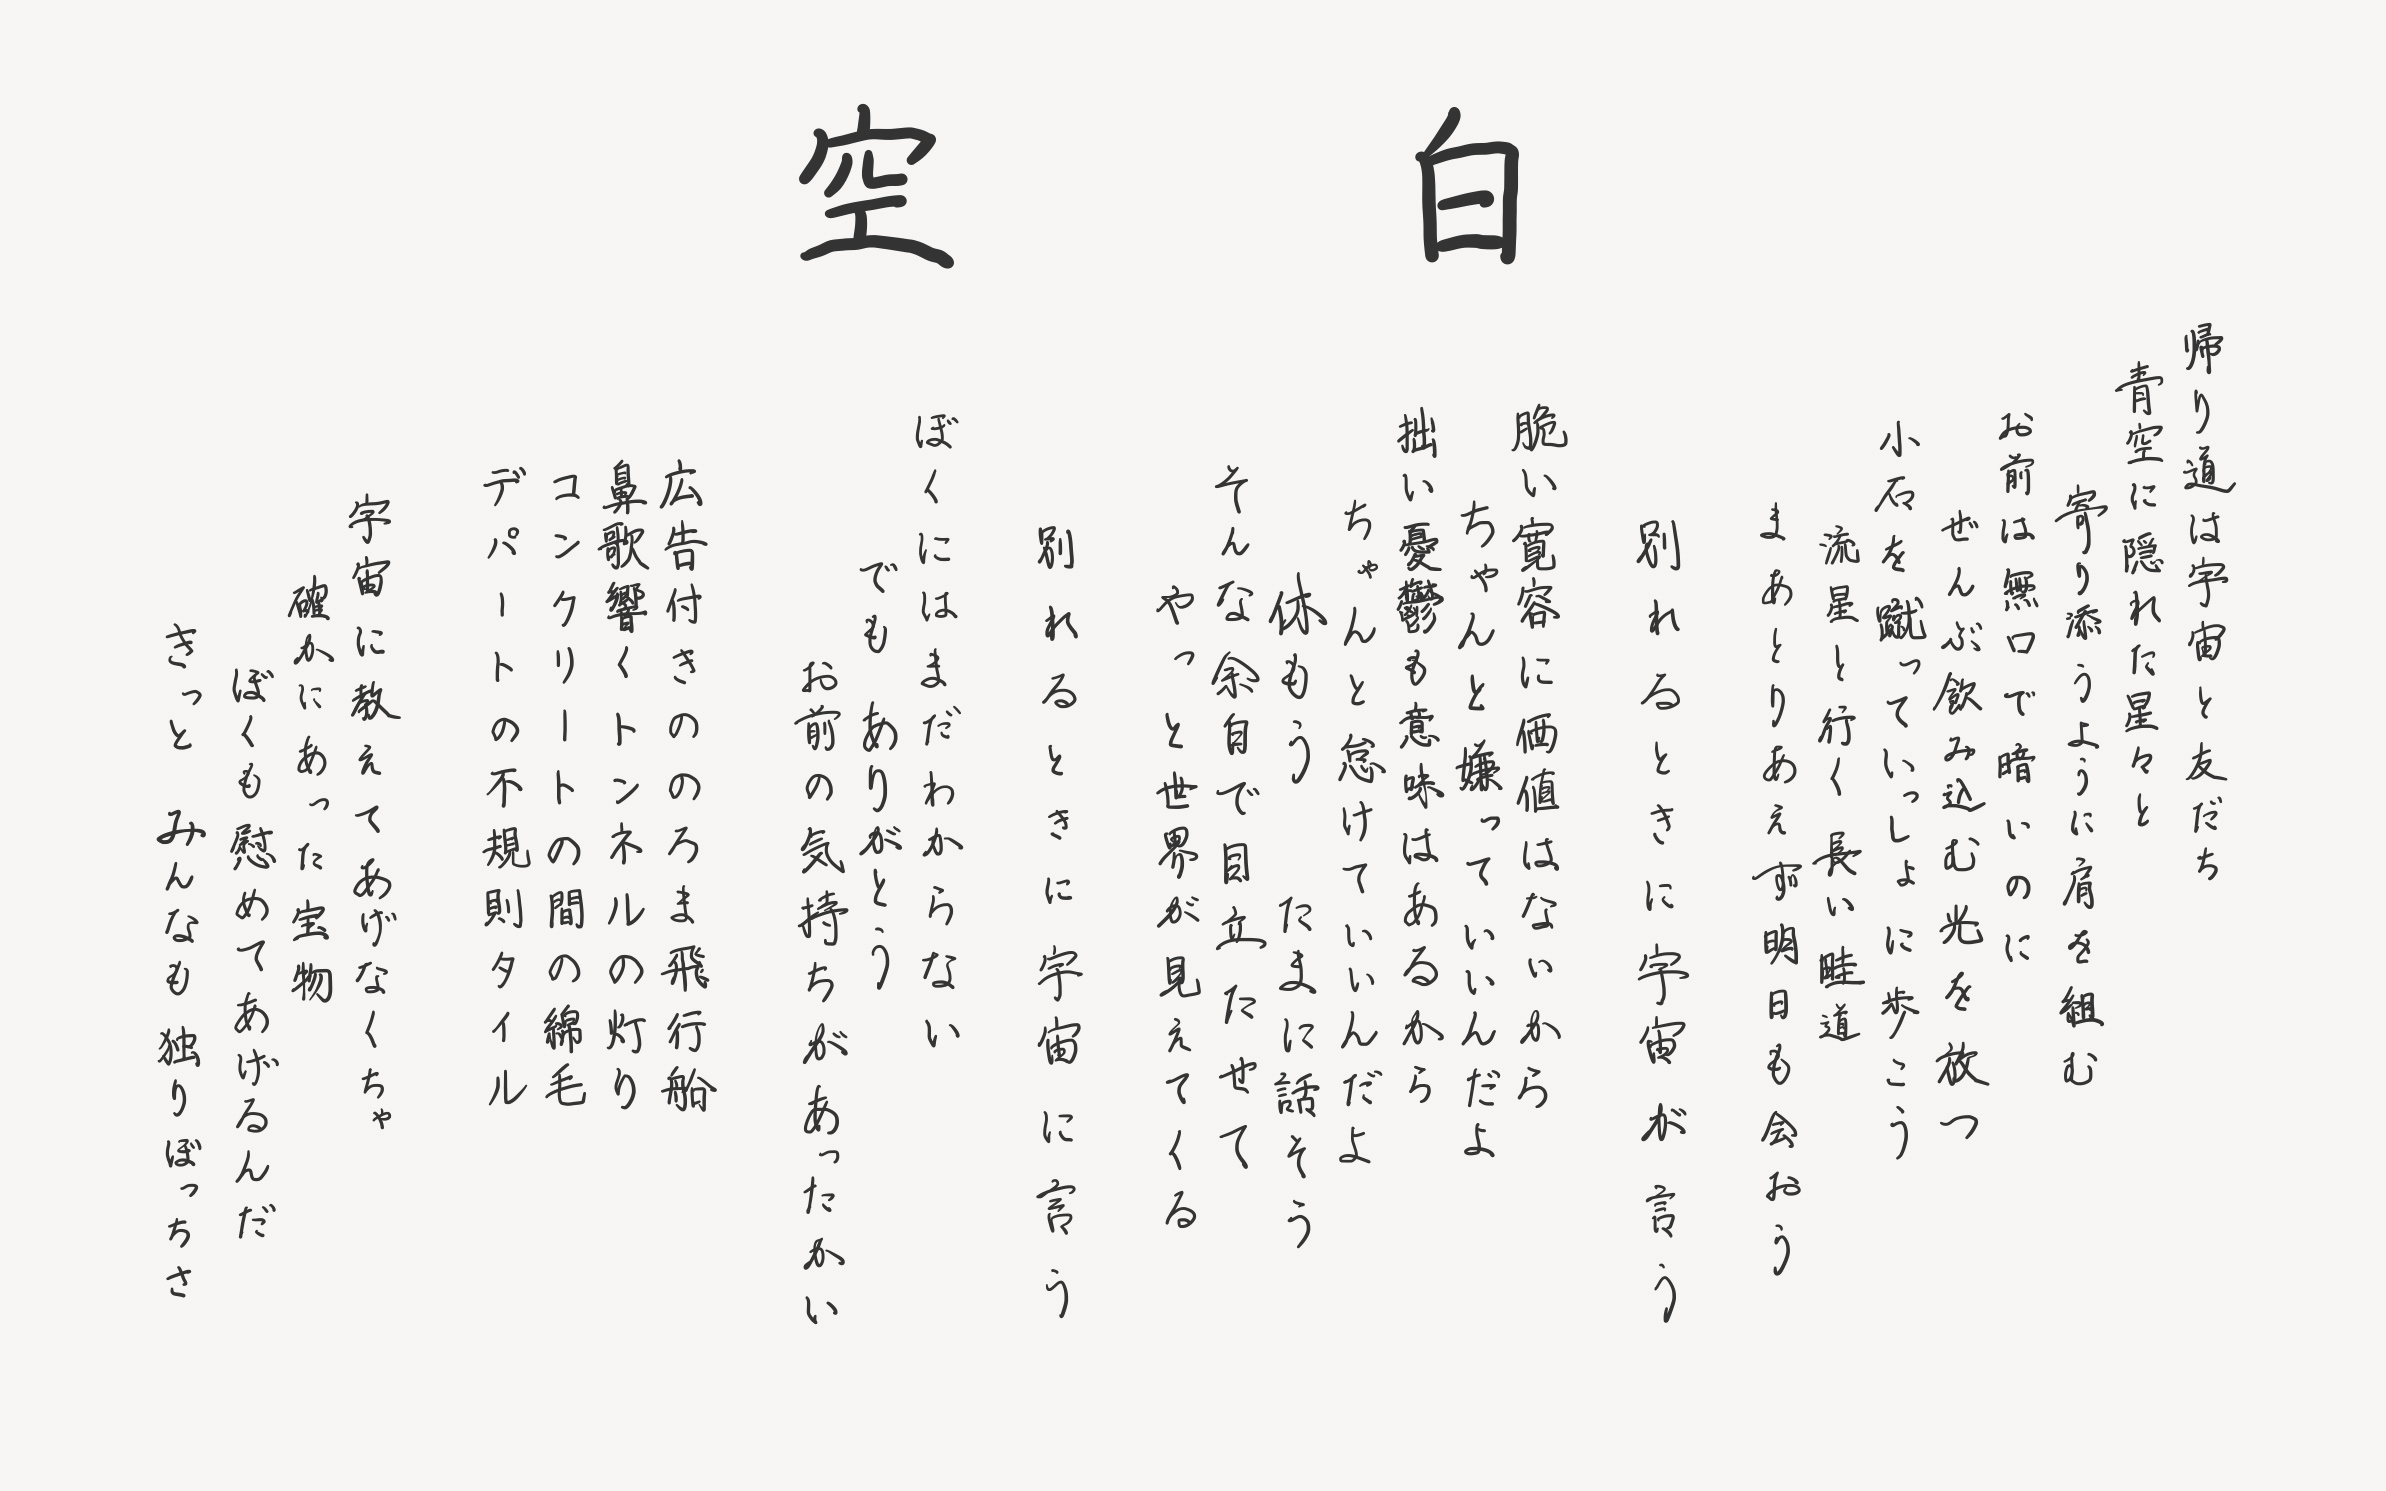 空白
帰り道は宇宙と友だち
青空に隠れた星々と
寄り添うように肩を組む
お前は無口で暗いのに
ぜんぶ飲み込む光を放つ
小石を蹴っていっしょに歩こう
流星と行く長い畦道
まあとりあえず明日も会おう
別れるときに宇宙が言う
脆い寛容に価値はないから
ちゃんと嫌っていいんだよ
拙い憂鬱も意味はあるから
ちゃんと怠けていいんだよ
休もう たまに話そう
そんな余白で目立たせて
やっと世界が見えてくる
別れるときに宇宙に言う
ぼくにはまだわからない
でも ありがとう
お前の気持ちがあったかい
広告付きののろま飛行船
鼻歌響くトンネルの灯り
コンクリートの間の綿毛
デパートの不規則タイル
宇宙に教えてあげなくちゃ
確かにあった宝物
ぼくも慰めてあげるんだ
きっと みんなも独りぼっちさ